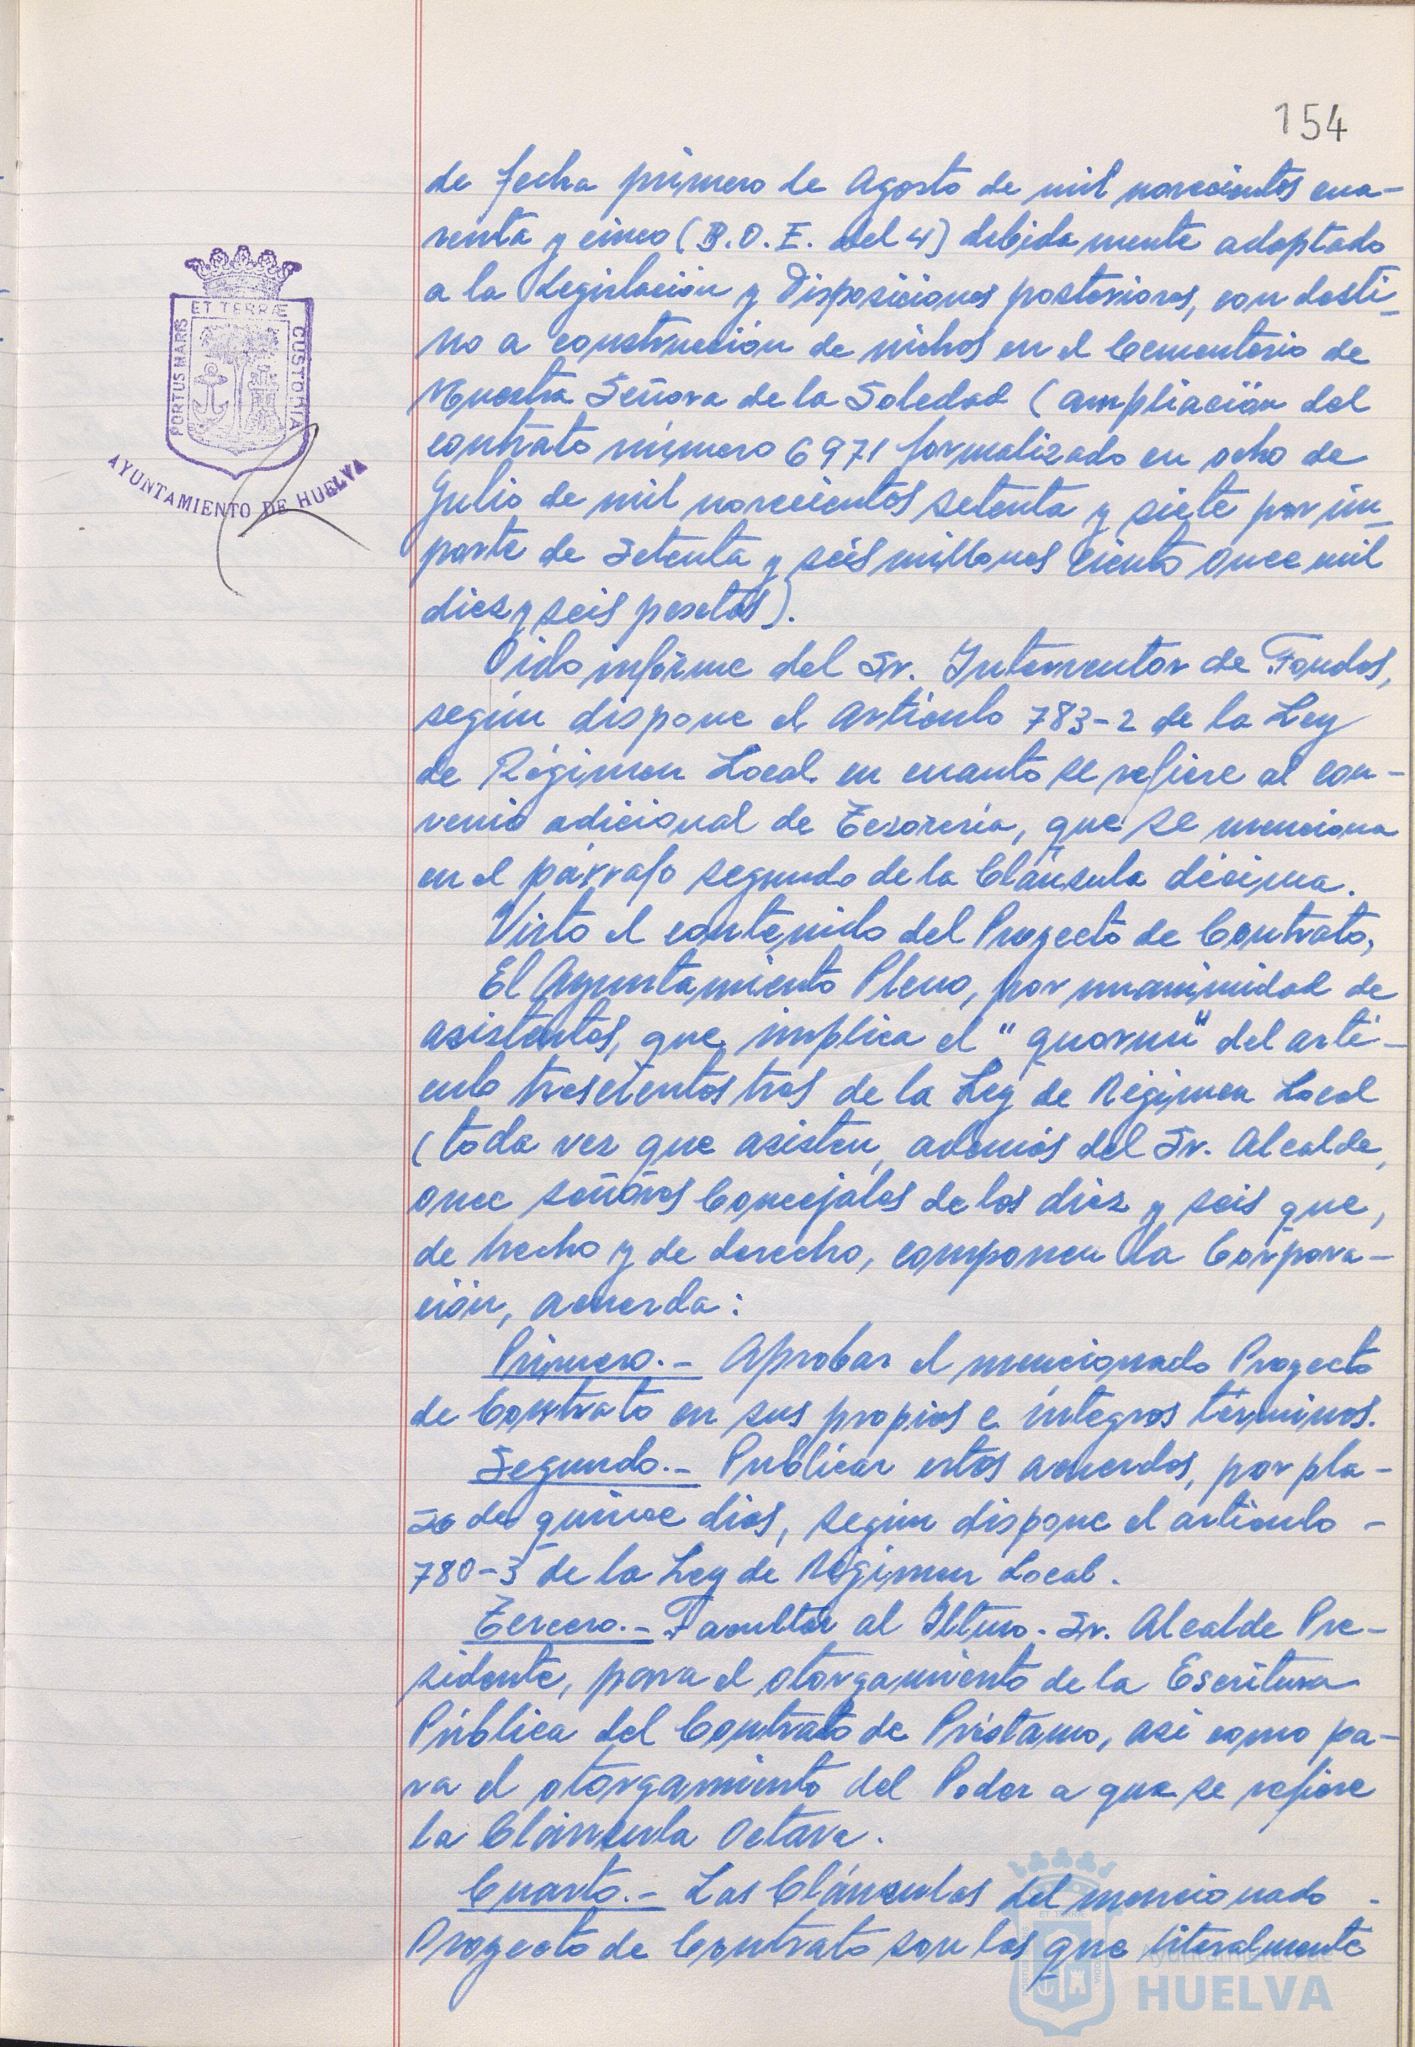 154
de fecha primero de Agosto de mil novecientos cua-
renta y cinco (B.O.E. del 4) debidamente adaptado
a la Legislación y Disposiciones posteriores, con desti-
no a construcción de nichos en el Cementerio de
Nuestra Señora de la Soledad (ampliación del
contrato número 6971 formalizado en ocho de
Julio de mil novecientos setenta y siete por im-
porte de Setenta y seis millones ciento once mil
diez y seis pesetas).
Oido informe del Sr. Interventor de Fondos,
según dispone el artículo 783-2 de la Ley
de Régimen Local en cuanto se refiere al con-
venio adicional de Tesorería, que se menciona
en el párrafo segundo de la Cláusula décima.
Visto el contenido del Proyecto de Contrato,
El Ayuntamiento Pleno, por unanimidad de
asistentes, que implica el "quorum" del artí-
culo trescientos tres de la Ley de Régimen Local
(toda vez que asisten, además del Sr. Alcalde,
once señores Concejales de los diez y seis que,
de hecho y de derecho, componen la Corpora-
ción, acuerda:
Primero.- Aprobar el mencionado Proyecto
de Contrato en sus propios e íntegros términos.
Segundo.- Publicar estos acuerdos, por pla-
zo de quince dias, según dispone el artículo -
780-3 de la Ley de Régimen Local.
Tercero.- Facultar al Iltmo. Sr. Alcalde Pre-
sidente, para el otorgamiento de la Escritura
Pública del Contrato de Préstamo, asi como pa-
ra el otorgamiento del Poder a que se refiere
la Cláusula Octava.
Cuarto.- Las Cláusulas del mencionado -
Proyecto de Contrato son las que literalmente
PORTUS MARIS
ET TERRÆ
CUSTODIA
AYUNTAMIENTO DE HUELVA
Ayuntamiento de
HUELVA